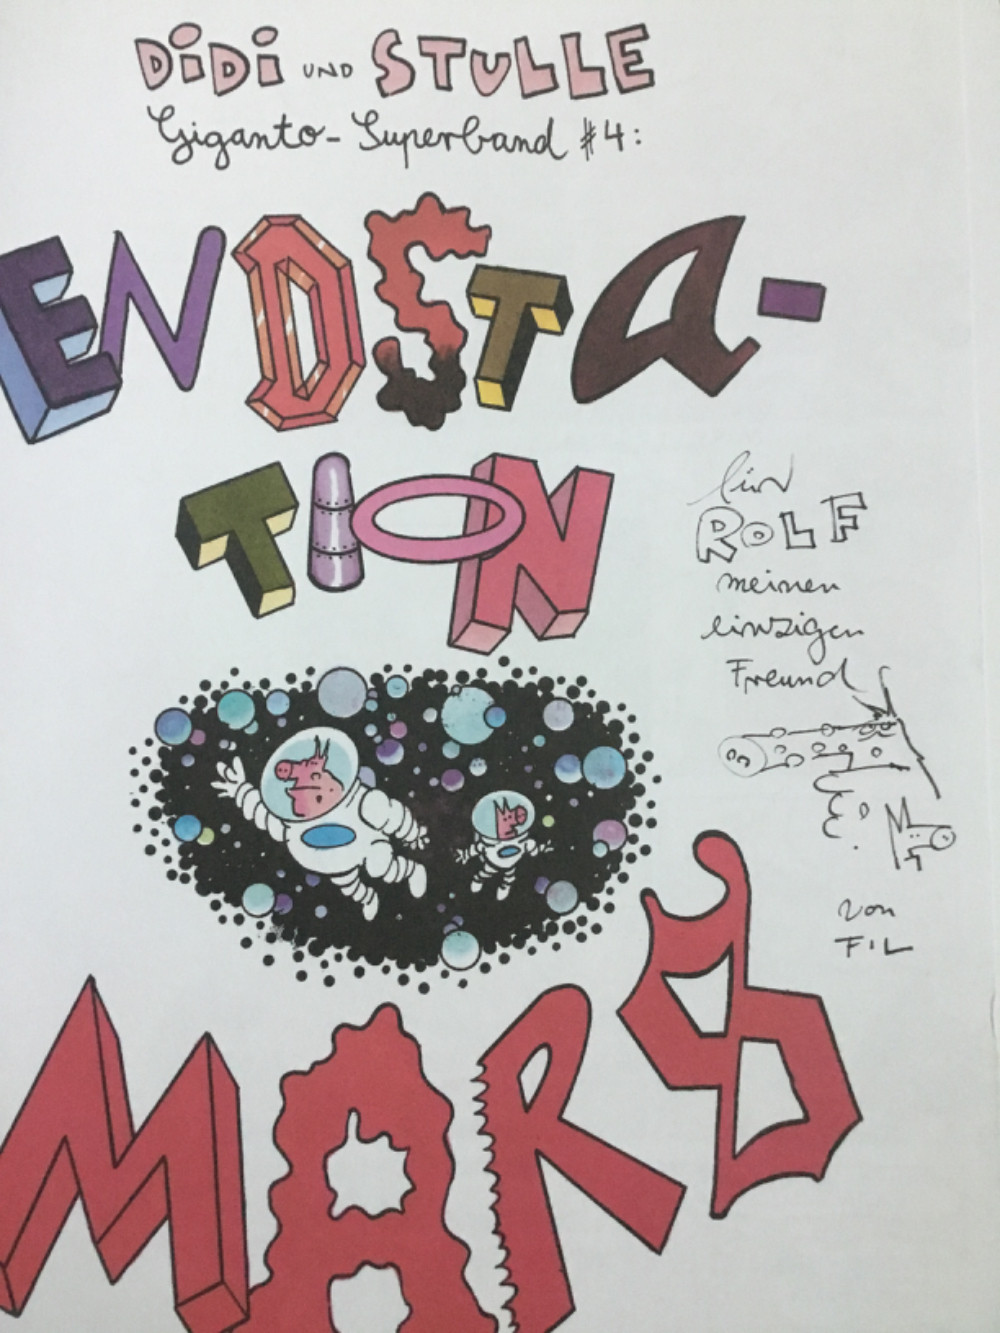 DiDi UND STULLE
Giganto-Superband #4:
ENDSTA-
TION
MARS
für
ROLF
meinen
einzigen
Freund
von
FIL